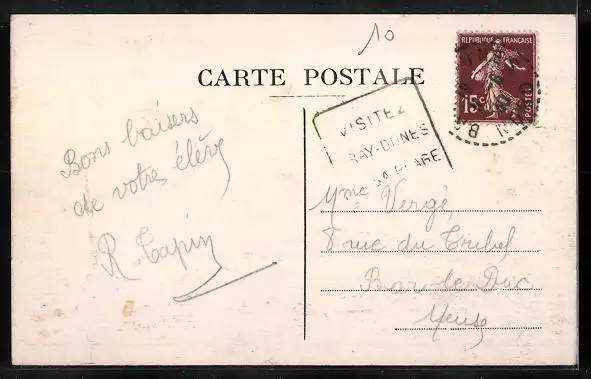 10
CARTE POSTALE
REPUBLIQUE FRANÇAISE
15c
POSTES
VISITEZ
BRAY-DUNES
SA PLAGE
Bons baisers
de votre élève
R. Tapin
Mme Vergé
8 rue du Tribel
Bar-le-Duc
Meuse